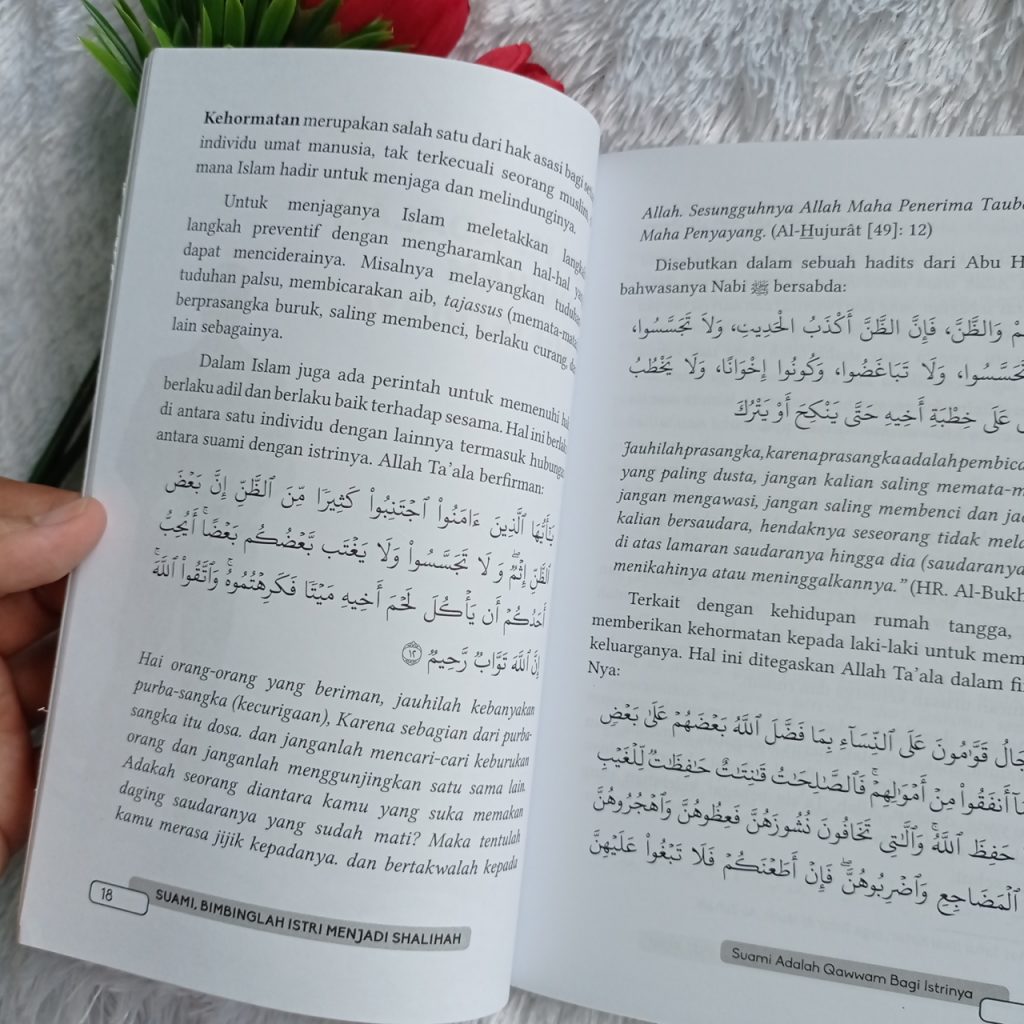 Kehormatan merupakan salah satu dari hak asasi bagi
individu umat manusia, tak terkecuali seorang muslim,
mana Islam hadir untuk menjaga dan melindunginya.
Untuk menjaganya Islam meletakkan
langkah preventif dengan mengharamkan hal-hal
dapat menciderainya. Misalnya melayangkan
tuduhan palsu, membicarakan aib, tajassus (memata-mata
berprasangka buruk, saling membenci, berlaku curang,
lain sebagainya.
Dalam Islam juga ada perintah untuk memenuhi
berlaku adil dan berlaku baik terhadap sesama. Hal ini
di antara satu individu dengan lainnya termasuk
antara suami dengan istrinya. Allah Ta'ala berfirman:
يَٰٓأَيُّهَا ٱلَّذِينَ ءَامَنُوا۟ ٱجْتَنِبُوا۟ كَثِيرًا مِّنَ ٱلظَّنِّ إِنَّ بَعْضَ
ٱلظَّنِّ إِثْمٌ ۖ وَلَا تَجَسَّسُوا۟ وَلَا يَغْتَب بَّعْضُكُم بَعْضًا ۚ أَيُحِبُّ
أَحَدُكُمْ أَن يَأْكُلَ لَحْمَ أَخِيهِ مَيْتًا فَكَرِهْتُمُوهُ ۚ وَٱتَّقُوا۟ ٱللَّهَ ۚ
إِنَّ ٱللَّهَ تَوَّابٌ رَّحِيمٌ ١٢
Hai orang-orang yang beriman, jauhilah kebanyakan
purba-sangka (kecurigaan), Karena sebagian dari purba-
sangka itu dosa. dan janganlah mencari-cari keburukan
orang dan janganlah menggunjingkan satu sama lain.
Adakah seorang diantara kamu yang suka memakan
daging saudaranya yang sudah mati? Maka tentulah
kamu merasa jijik kepadanya. dan bertakwalah kepada
18
SUAMI, BIMBINGLAH ISTRI MENJADI SHALIHAH
Allah. Sesungguhnya Allah Maha Penerima
Maha Penyayang. (Al-Hujurât [49]: 12)
Disebutkan dalam sebuah hadits dari Abu
bahwasanya Nabi ﷺ bersabda:
وَالظَّنَّ، فَإِنَّ الظَّنَّ أَكْذَبُ الْحَدِيثِ، وَلَا تَجَسَّسُوا،
تَحَسَّسُوا، وَلَا تَبَاغَضُوا، وَكُونُوا إِخْوَانًا، وَلَا يَخْطُبُ
عَلَى خِطْبَةِ أَخِيهِ حَتَّى يَنْكِحَ أَوْ يَتْرُكَ
Jauhilah prasangka, karena prasangka adalah
yang paling dusta, jangan kalian saling
jangan mengawasi, jangan saling membenci dan
kalian bersaudara, hendaknya seseorang tidak
di atas lamaran saudaranya hingga dia (saudaranya
menikahinya atau meninggalkannya." (HR.
Terkait dengan kehidupan rumah tangga,
memberikan kehormatan kepada laki-laki untuk
keluarganya. Hal ini ditegaskan Allah Ta'ala dalam
Nya:
قَوَّٰمُونَ عَلَى ٱلنِّسَآءِ بِمَا فَضَّلَ ٱللَّهُ بَعْضَهُمْ عَلَىٰ بَعْضٍ
أَنفَقُوا۟ مِنْ أَمْوَٰلِهِمْ ۚ فَٱلصَّٰلِحَٰتُ قَٰنِتَٰتٌ حَٰفِظَٰتٌ لِّلْغَيْبِ
حَفِظَ ٱللَّهُ ۚ وَٱلَّٰتِى تَخَافُونَ نُشُوزَهُنَّ فَعِظُوهُنَّ وَٱهْجُرُوهُنَّ
ٱلْمَضَاجِعِ وَٱضْرِبُوهُنَّ ۖ فَإِنْ أَطَعْنَكُمْ فَلَا تَبْغُوا۟ عَلَيْهِنَّ
Suami Adalah Qawwam Bagi Istrinya